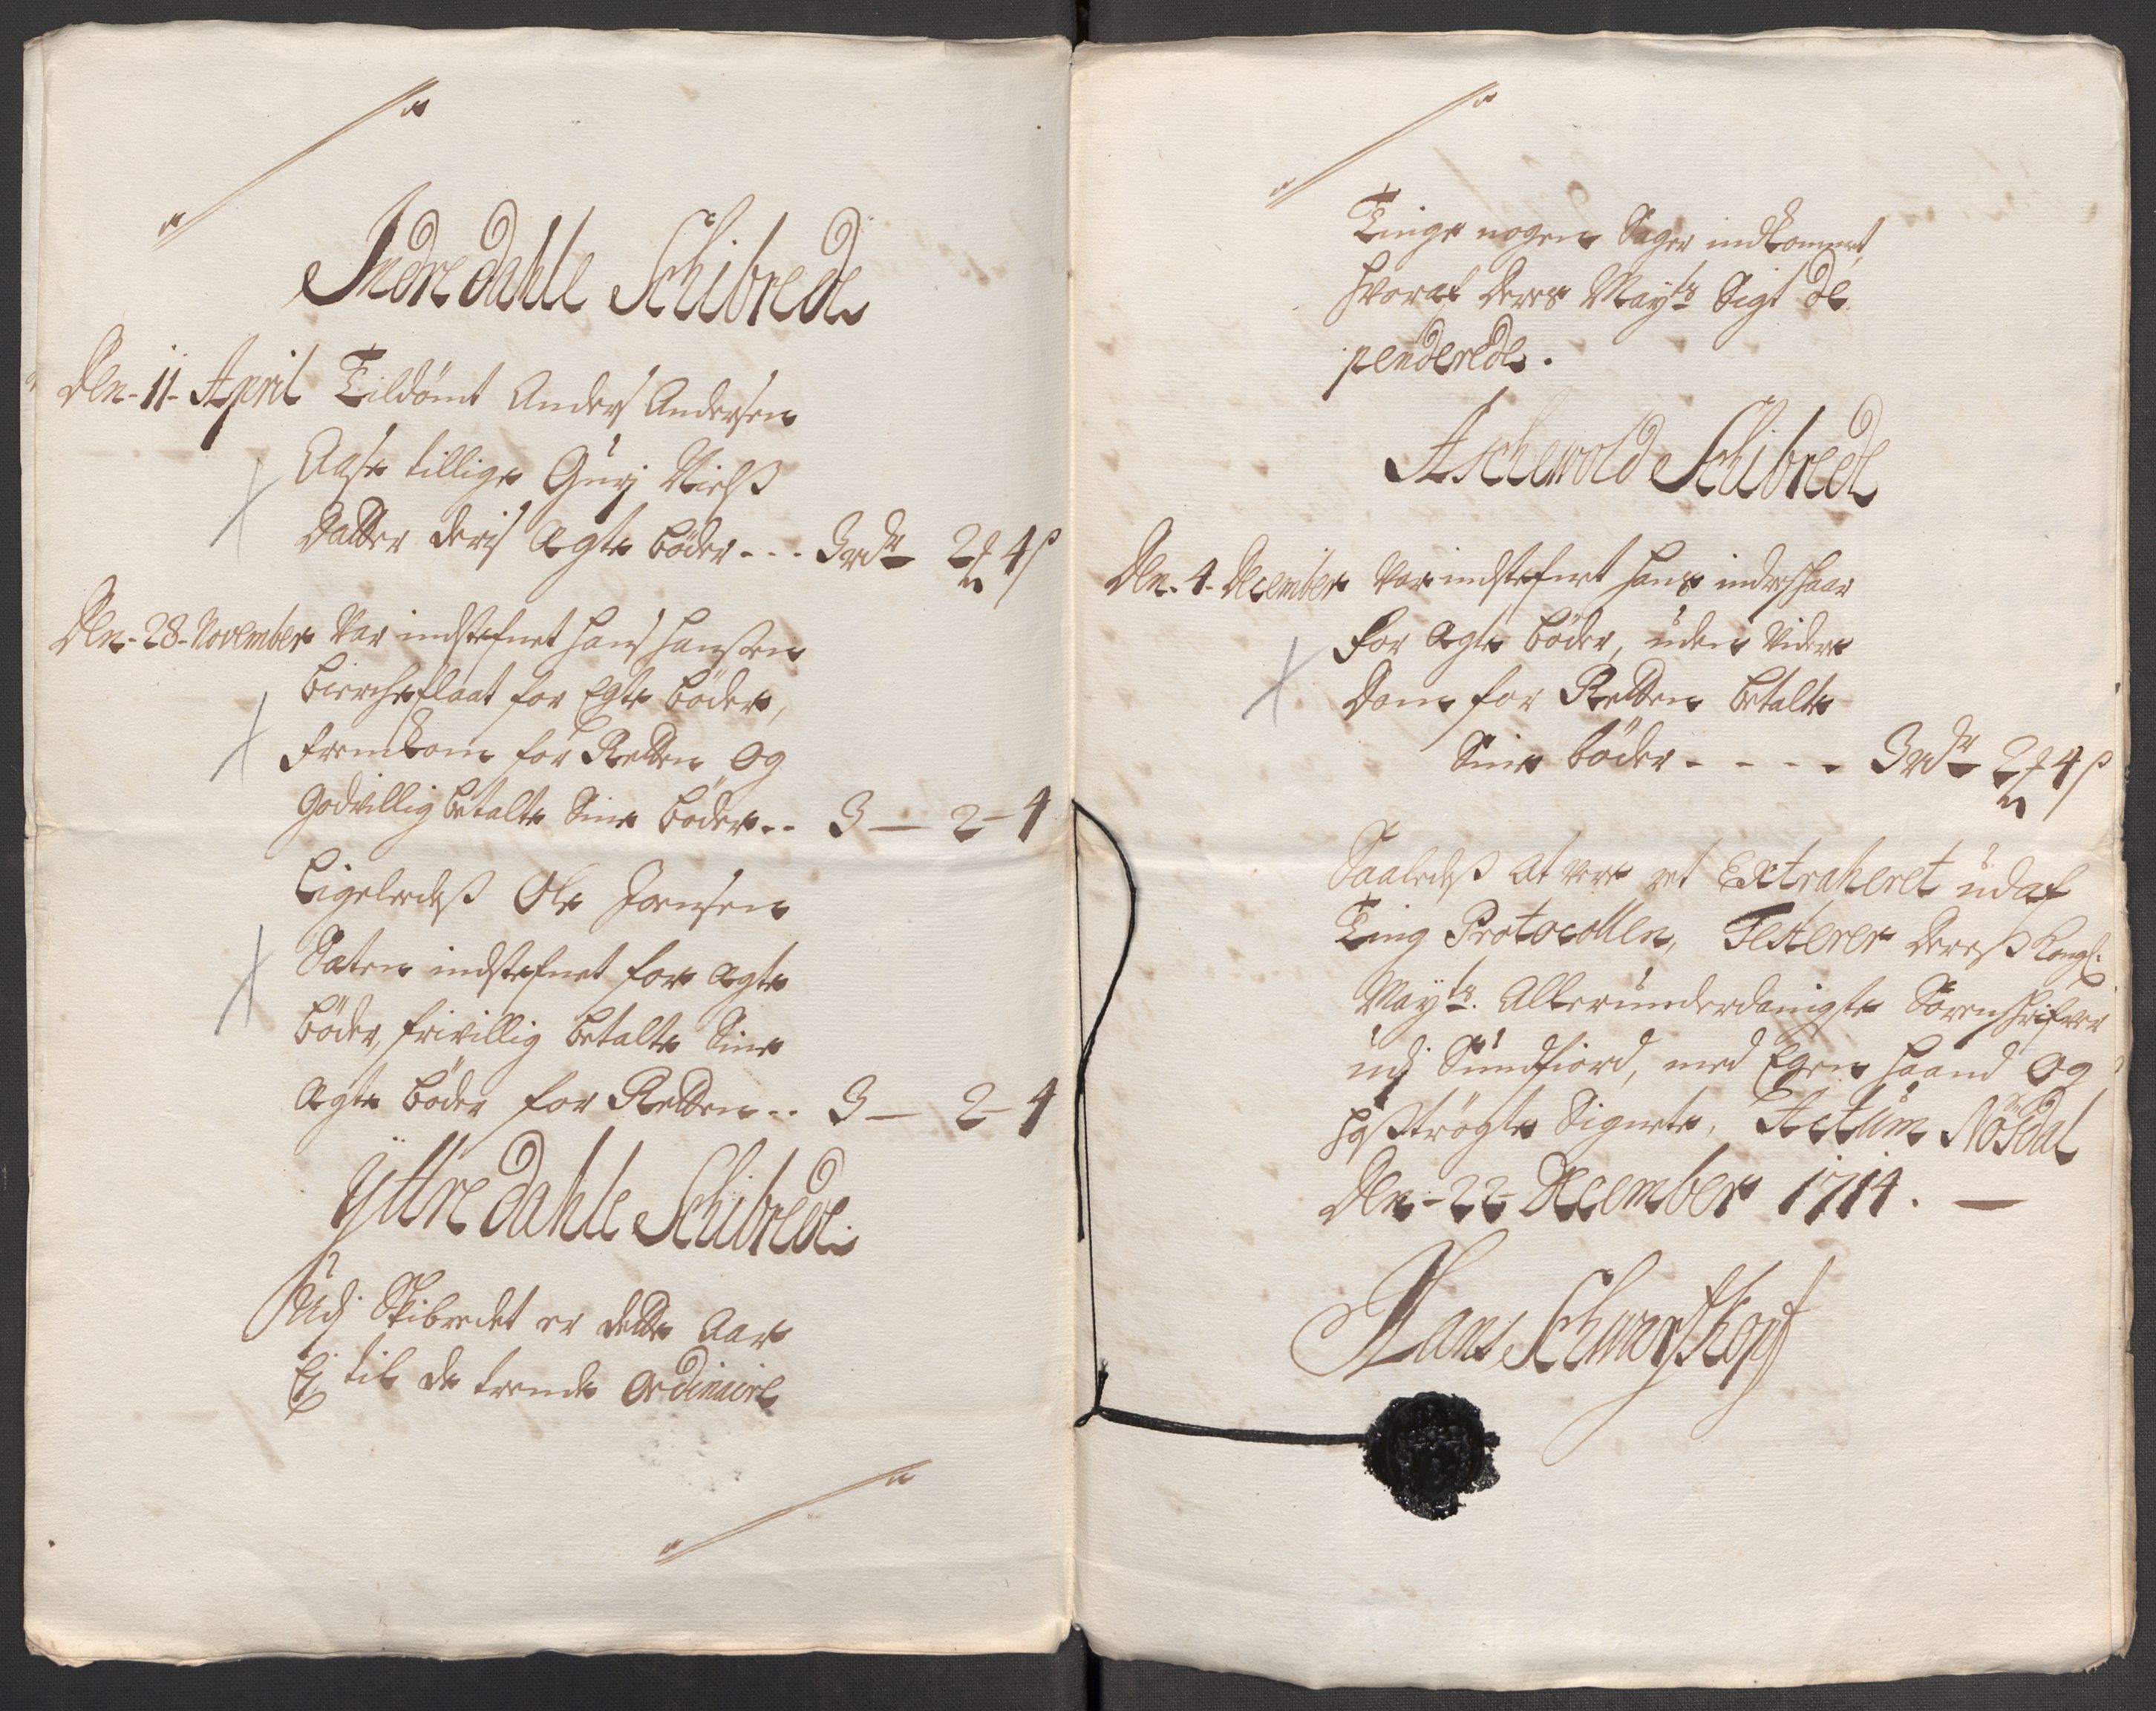 Indre dahle Schibrede
Den-11-April Tildömt Anders Andersen
Aase tillige Gurj Nielß
Datter deris Ægte böder --- 3 rdr 2 ℳ 4 ß
Den-28-November Var indstefnet Hans Hansen
bircheflaat for Egte böder,
fremkom for Retten og
Godvillig betalte Sine böder.. 3 — 2 - 4
Ligeledeß Ole Joensen
Saten indstefnet for ægte
böder, frivillig betalte Sine
Ægte böder for Retten.. 3 — 2 - 4
Yttre dahle Schibrede.
Udj Skibredet er dette Aar
Ej til de trende Ordinaire
Tinge nogen Sager indkommet,
hvoraf deres Mayts Sigt de
penderede.
Aschevold Schibrede
Den-4-December Var indstefnet Hans indreHaar
for Ægte böder, uden videre
Dom for Retten betalte
Sine böder - - - - 3 rdr 2 ℳ 4 ß
Saaledeß at vere ret Extraheret udaf
Ting Protocollen, Testerer dereß Kongl:
Mayts. Allerunderdanigste Sörenschrifver
udj Sundfiord, med Egen haand og
hoßtrögte Signete, Actum Nösdal
Den-22 December 1714. —
Hans Schwartskopf